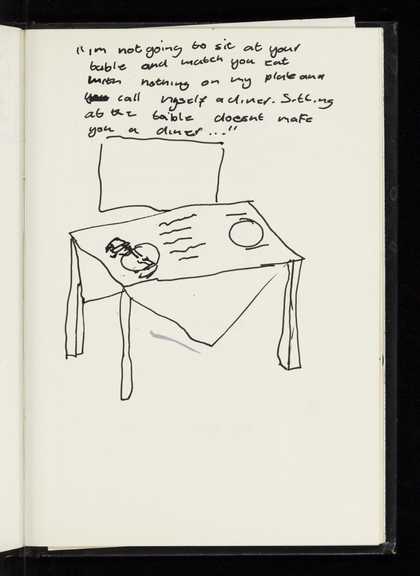 "im not going to sit at your
table and watch you eat
with nothing on my plate and
call myself a diner. Sitting
at the table doesnt make
you a diner..."